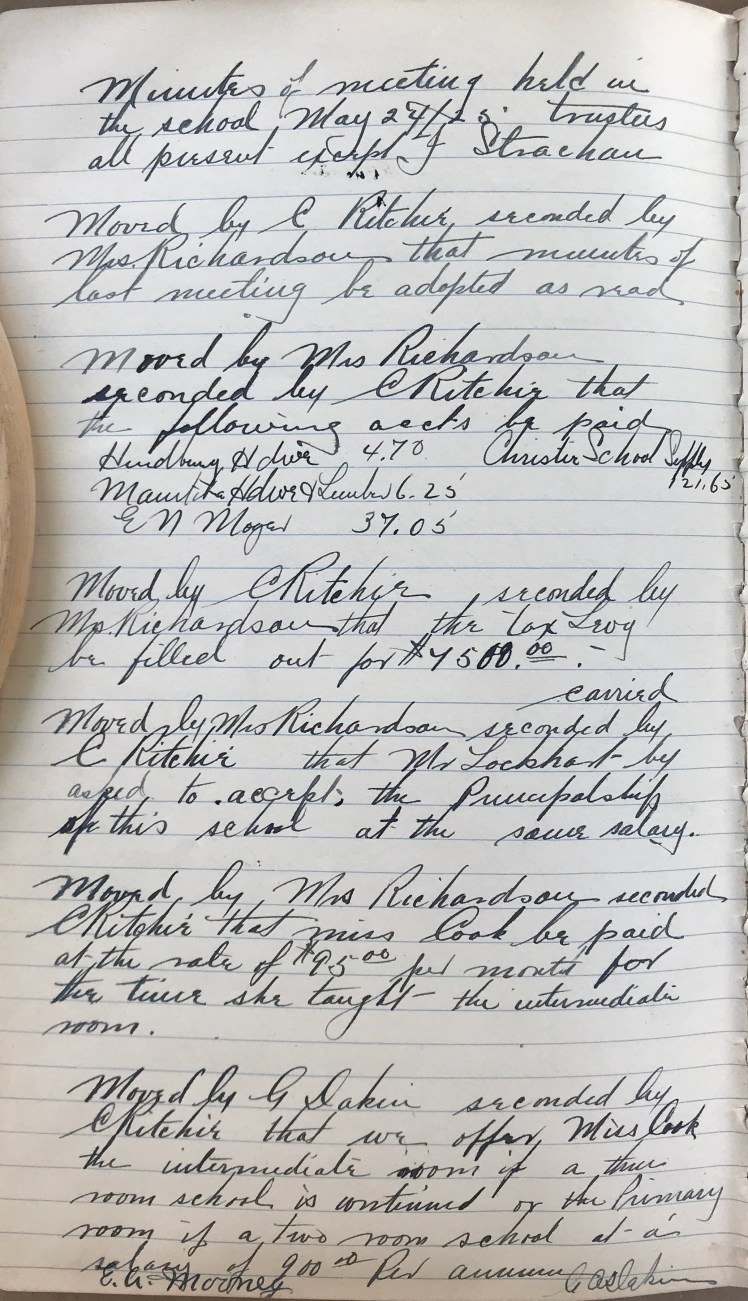 Minutes of meeting held in
the school, May 24/25. trustees
all present except J Strachan
Moved by C Ritchie, seconded by
Mrs. Richardson that minutes of
last meeting be adopted as read
Moved by Mrs Richardson
seconded by C Ritchie that
the following accts be paid
Hdwe 4.70 Christie School Supply
121.65
Hdwe & Lumber 6.25
E N Moyer 37.05
Moved by C Ritchie, seconded by
Mrs. Richardson that the tax Levy
be filled out for $4500.00.-
carried
Moved by Mrs Richardson seconded by
C Ritchie that Mr Lockhart by
asked to accept, the Principalship
of this school at the same salary.
Moved, by, Mrs Richardson seconded
C Ritchie that miss Cook be paid
at the rate of $95.00 per month for
the time she taught the intermediate
room.
Moved by G Dakin seconded by
C Ritchie that we offer, Miss Cook
the intermediate room if a three
room school is continued or the Primary
room if a two room school at a
salary of 900.00 Per annum
E. A. Mooney G A Dakin